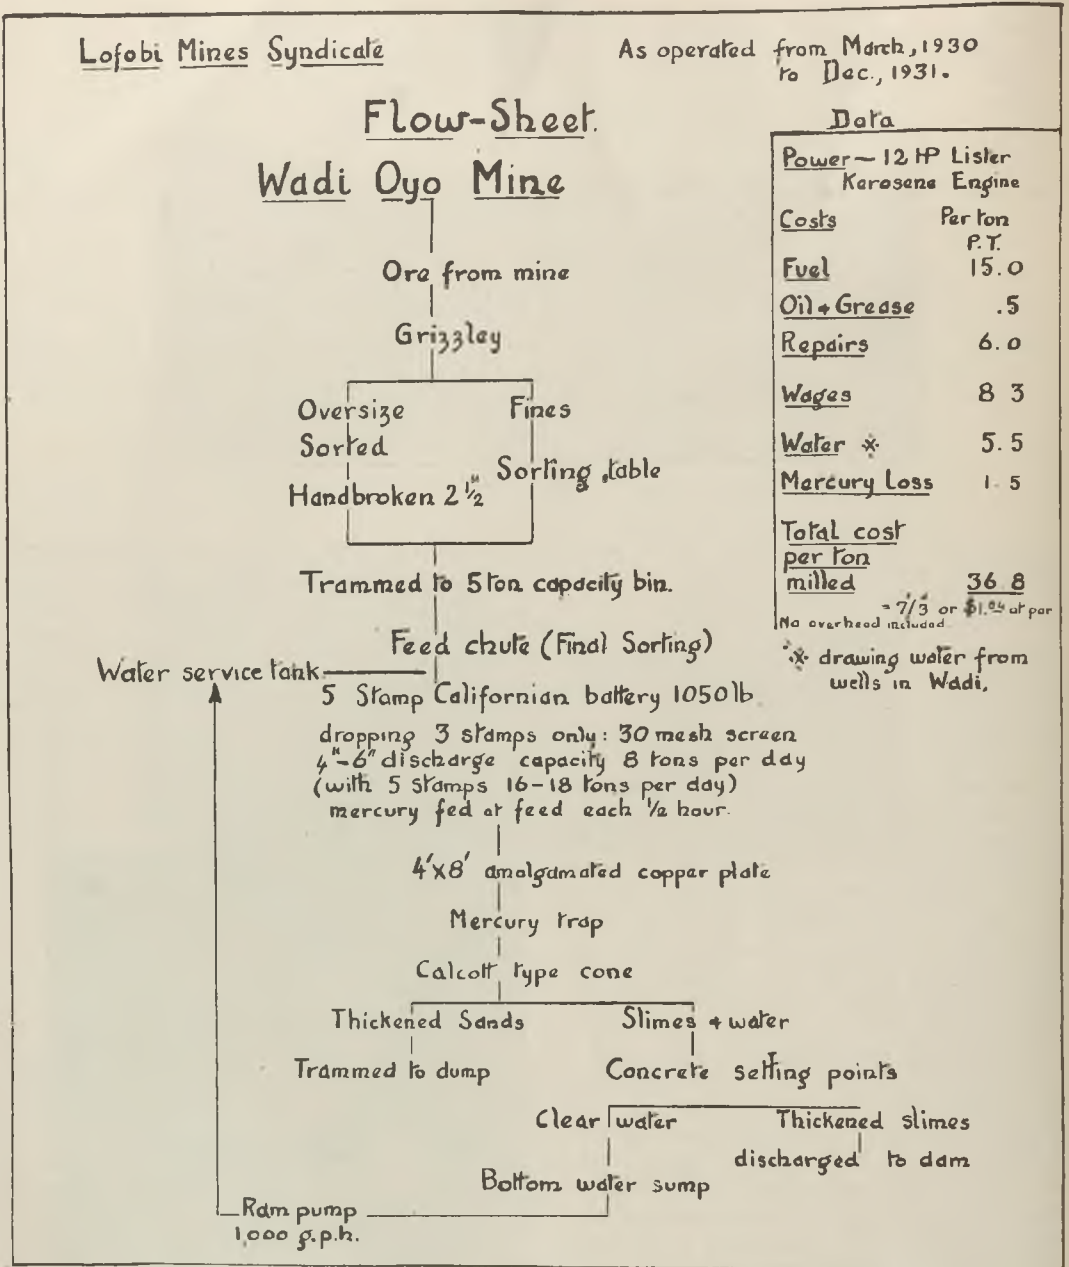 Lofobi Mines Syndicate
As operated from March, 1930
to Dec., 1931.
Flow-Sheet.
Wadi Oyo Mine
Ore from mine
Grizzley
Oversize
Sorted
Handbroken 2 1/2"
Fines
Sorting table
Trammed to 5 ton capacity bin.
Feed chute (Final Sorting)
Water service tank
5 Stamp Californian battery 1050 lb
dropping 3 stamps only: 30 mesh screen
4"-6" discharge capacity 8 tons per day
(with 5 stamps 16-18 tons per day)
mercury fed at feed each 1/2 hour.
4'X8' amalgamated copper plate
Mercury trap
Calcott type cone
Thickened Sands
Trammed to dump
Slimes + water
Concrete setting points
Clear water
Thickened slimes
discharged to dam
Bottom water sump
Ram pump
1,000 g.p.h.
Data
Power ~ 12 HP Lister
Kerosene Engine
Costs Per ton
P.T.
Fuel 15.0
Oil + Grease .5
Repairs 6.0
Wages 8 3
Water ※ 5.5
Mercury Loss 1.5
Total cost
per ton
milled 36 8
= 7/3 or $1.04 at par
No overhead included
※ drawing water from
wells in Wadi.